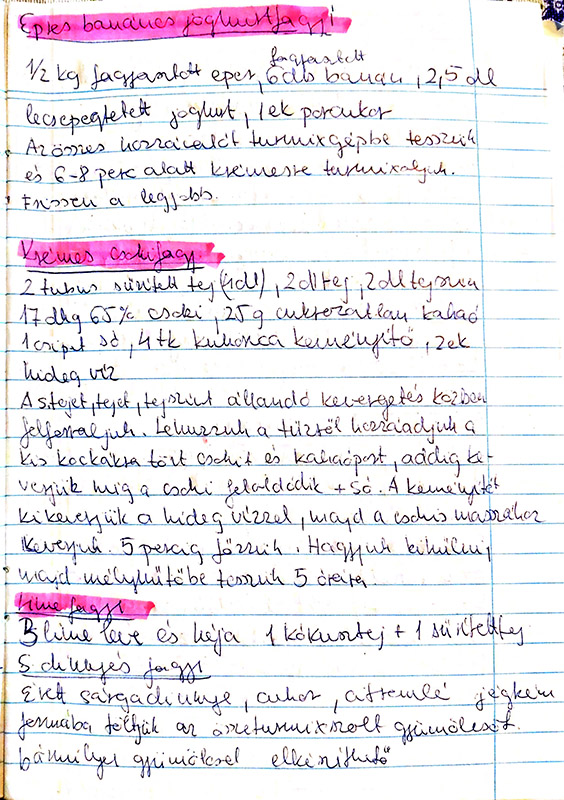 Epres banános joghurtfagyi
fagyasztott
1/2 kg fagyasztott eper, 6db banán, 2,5 dl
lecsepegtetett joghurt, 1ek porcukor
Az összes hozzávalót turmixgépbe tesszük
és 6-8 perc alatt krémesre turmixoljuk.
Frissen a legjobb.
Krémes csokifagyi
2 tubus sűrített tej (4dl), 2dl tej, 2dl tejszín
17dkg 65% csoki, 25g cukrozatlan kakaó
1 csipet só, 4tk kukorica keményítő, 2ek
hideg víz
A s.tejet, tejet, tejszínt állandó kevergetés közben
felforraljuk. Lehúzzuk a tűzről hozzáadjuk a
kis kockákra tört csokit és kakaóport, addig ke-
verjük míg a csoki feloldódik + só. A keményítőt
kikeverjük a hideg vízzel, majd a csokis masszához
keverjük. 5 percig főzzük. Hagyjuk kihűlni,
majd mélyhűtőbe tesszük 5 órára.
Lime fagyi
3 lime leve és héja 1 kókusztej + 1 sűrített tej
S.dinnyés fagyi
Érett sárgadinnye, cukor, citromlé jégkrém
formába töltjük az összeturmixszolt gyümölcsöt.
bármilyen gyümölccsel elkészíthető